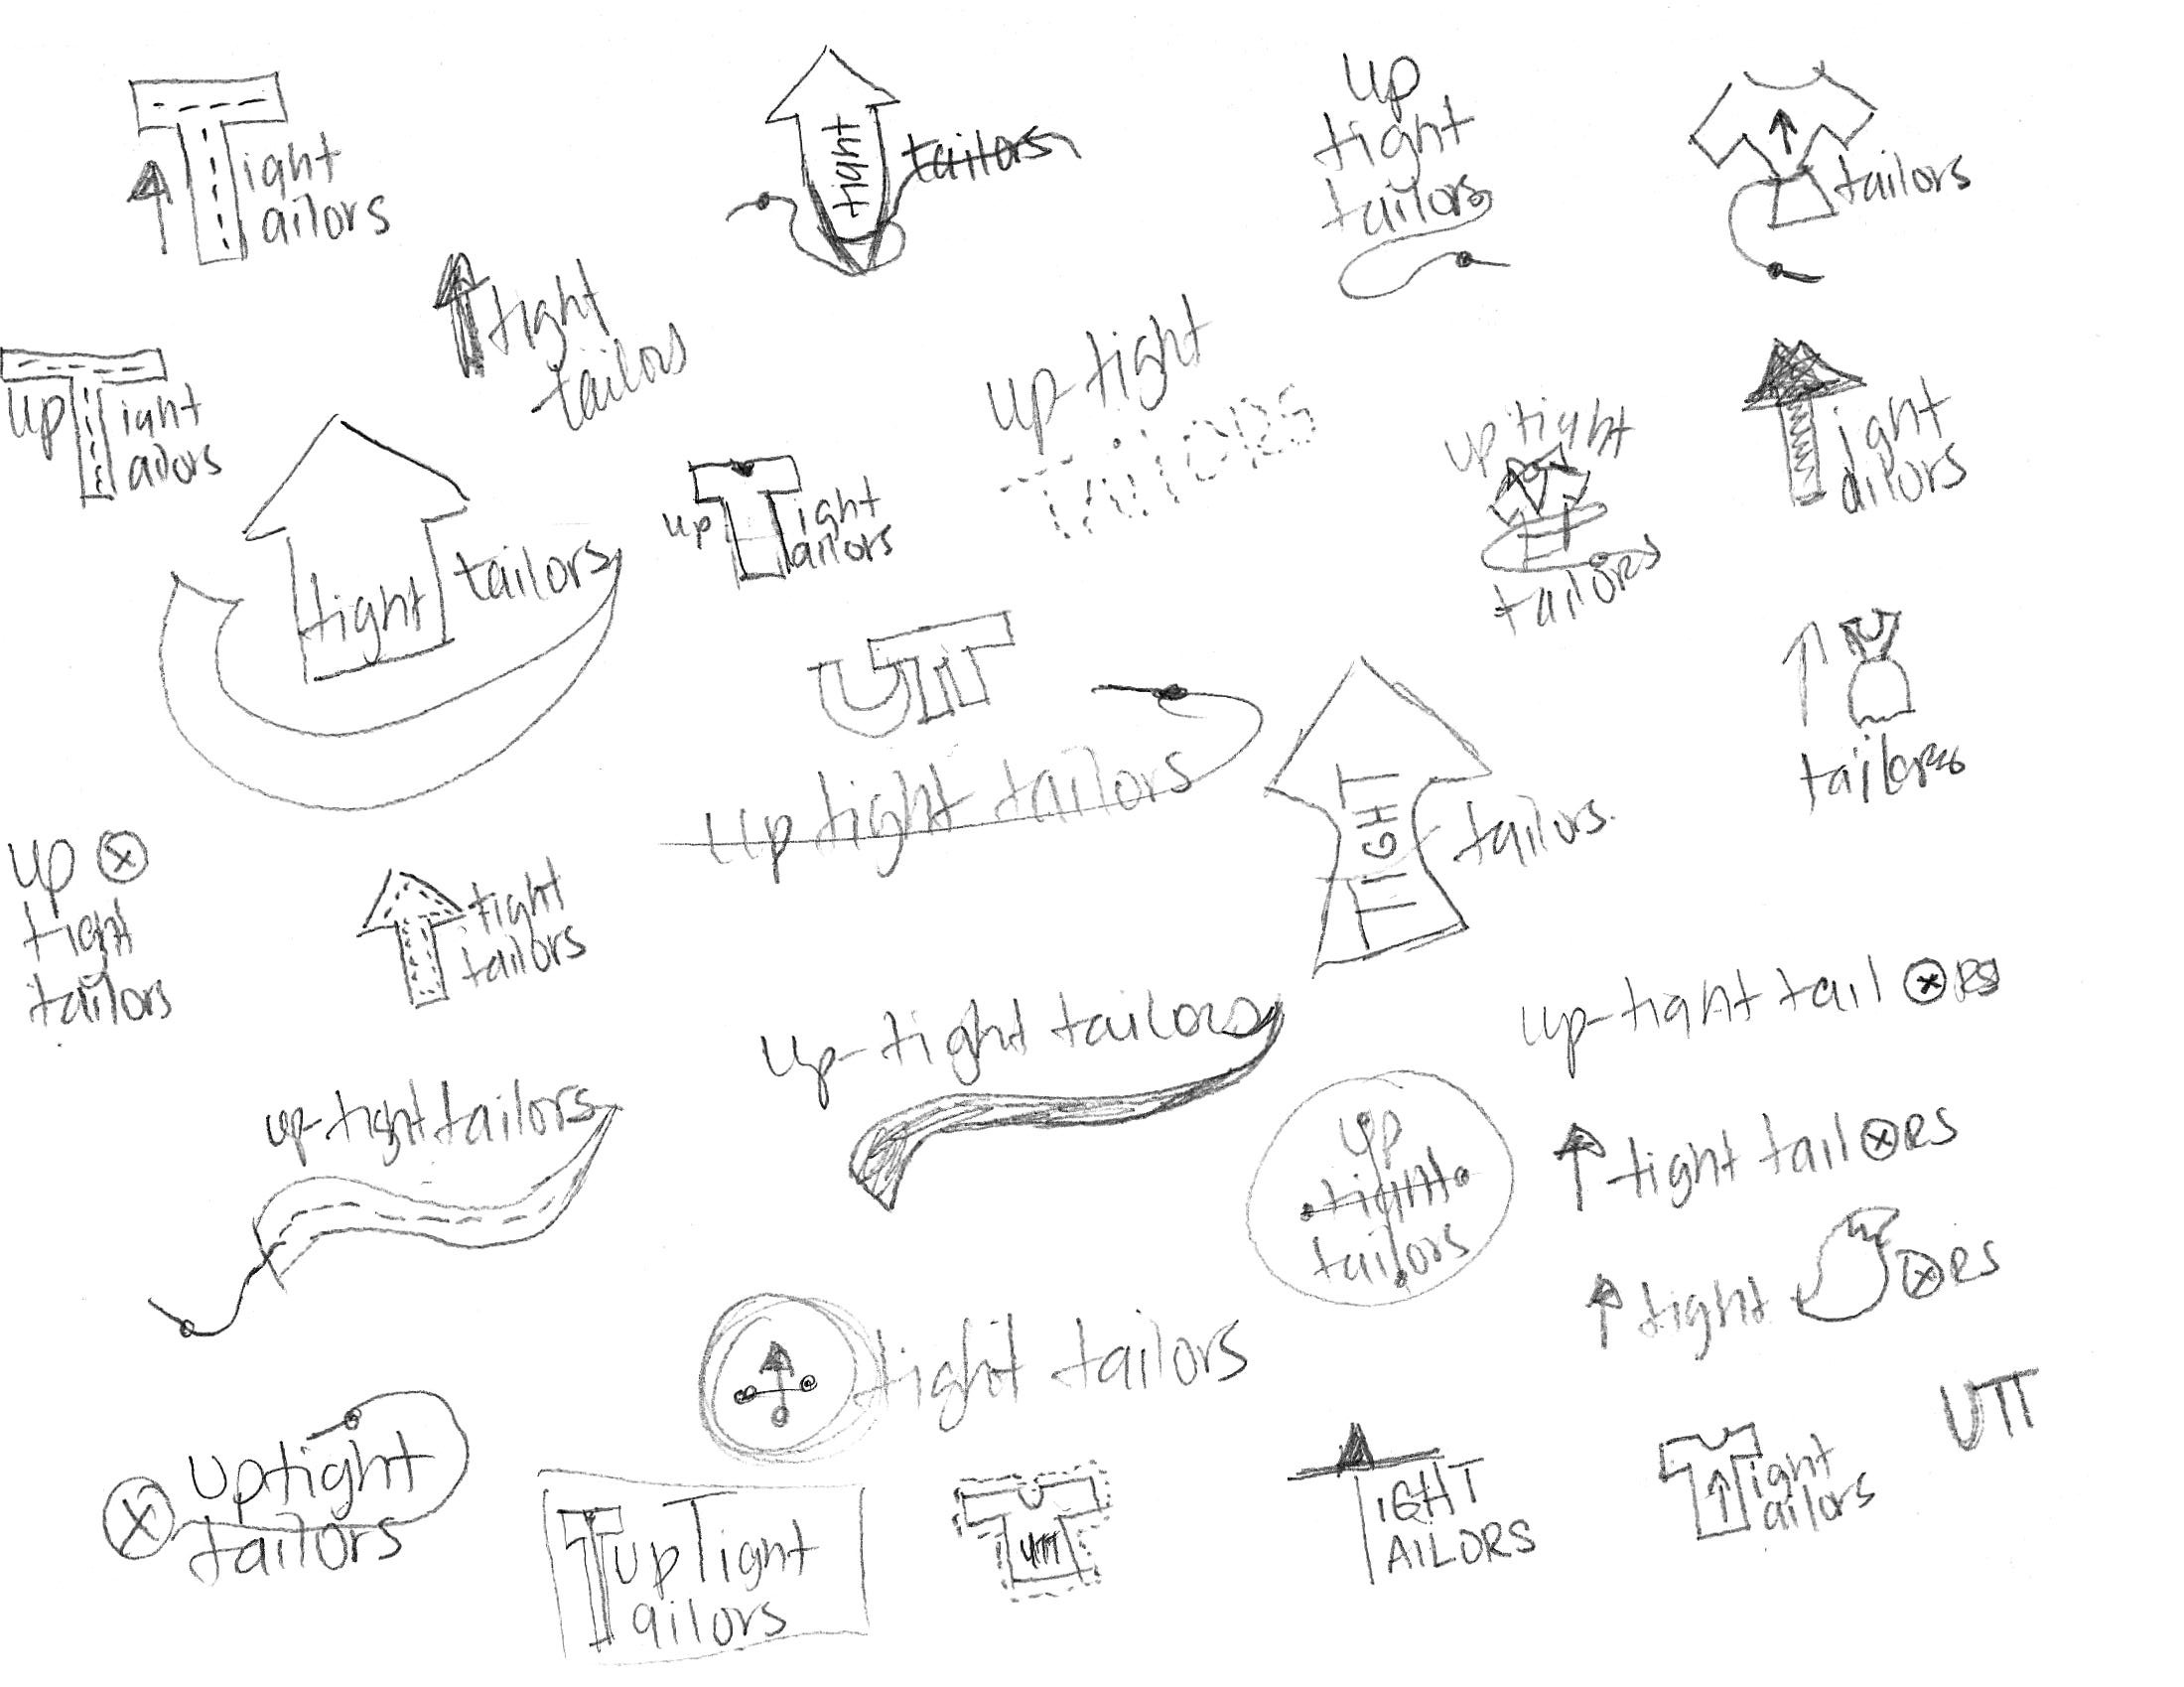 Tight
Tailors
tight
tailors
up
tight
tailors
tailors
tight
tailors
up Tight
Tailors
tight
tailors
up Tight
Tailors
up-tight
TAILORS
up tight
tailors
ight
ailors
UTT
up tight tailors
TIGHT
tailors
tailors
up
tight
tailors
tight
tailors
up-tight tailors
up-tight tailors
up-tight tailors
up
tight
tailors
tight tailors
tight
ORS
tight tailors
uptight
tailors
T upTight
ailors
UTT
TIGHT
AILORS
Tight
ailors
UTT